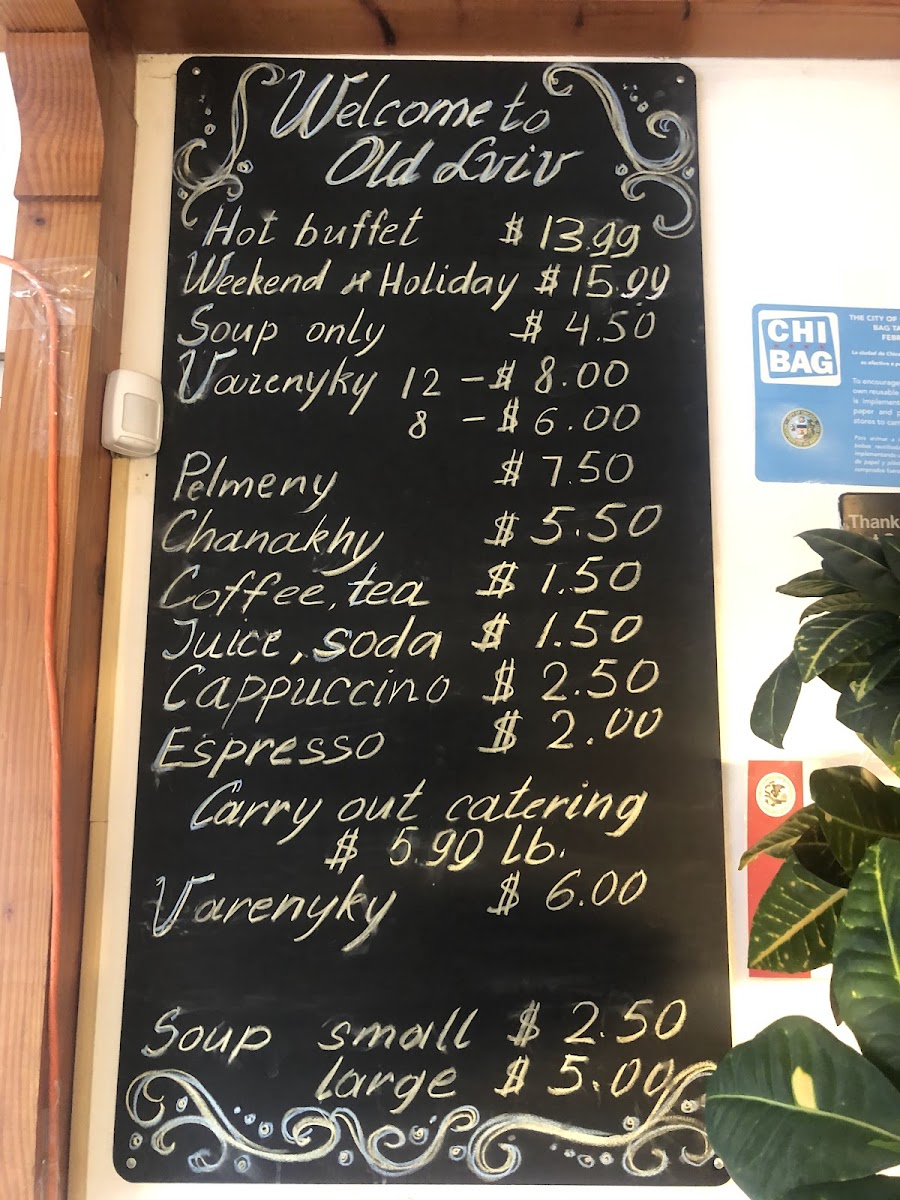 Welcome to
Old Lviv
Hot buffet $ 13.99
Weekend & Holiday $ 15.99
Soup only $ 4.50
Varenyky 12 - $ 8.00
8 - $ 6.00
Pelmeny $ 7.50
Chanakhy $ 5.50
Coffee, tea $ 1.50
Juice, soda $ 1.50
Cappuccino $ 2.50
Espresso $ 2.00
Carry out catering
$ 5.99 lb.
Varenyky $ 6.00
Soup small $ 2.50
large $ 5.00
CHI
BAG
THE CITY OF
BAG TA
FEBR
La ciudad de Chica
To encourage
own reusable
is implement
paper and p
stores to carr
Para animar a
Thank